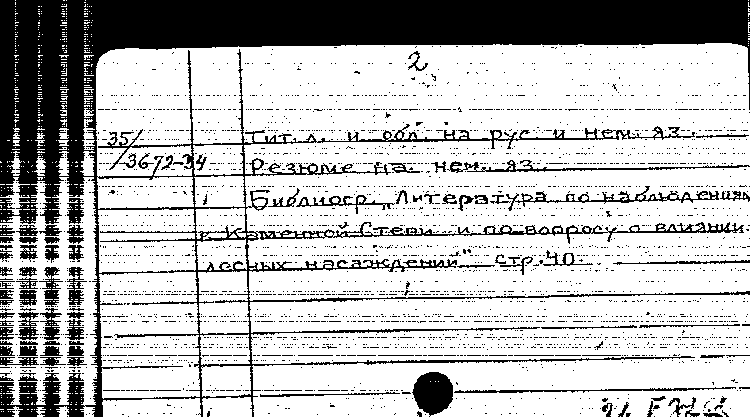 2
35/ Тит. л. и обл. на рус и нем. яз.
/3672-34 Резюме на нем. яз.
Библиогр. „Литература по наблюдениям
в Каменной Степи и по вопросу о влиянии
лесных насаждений" стр. 40.